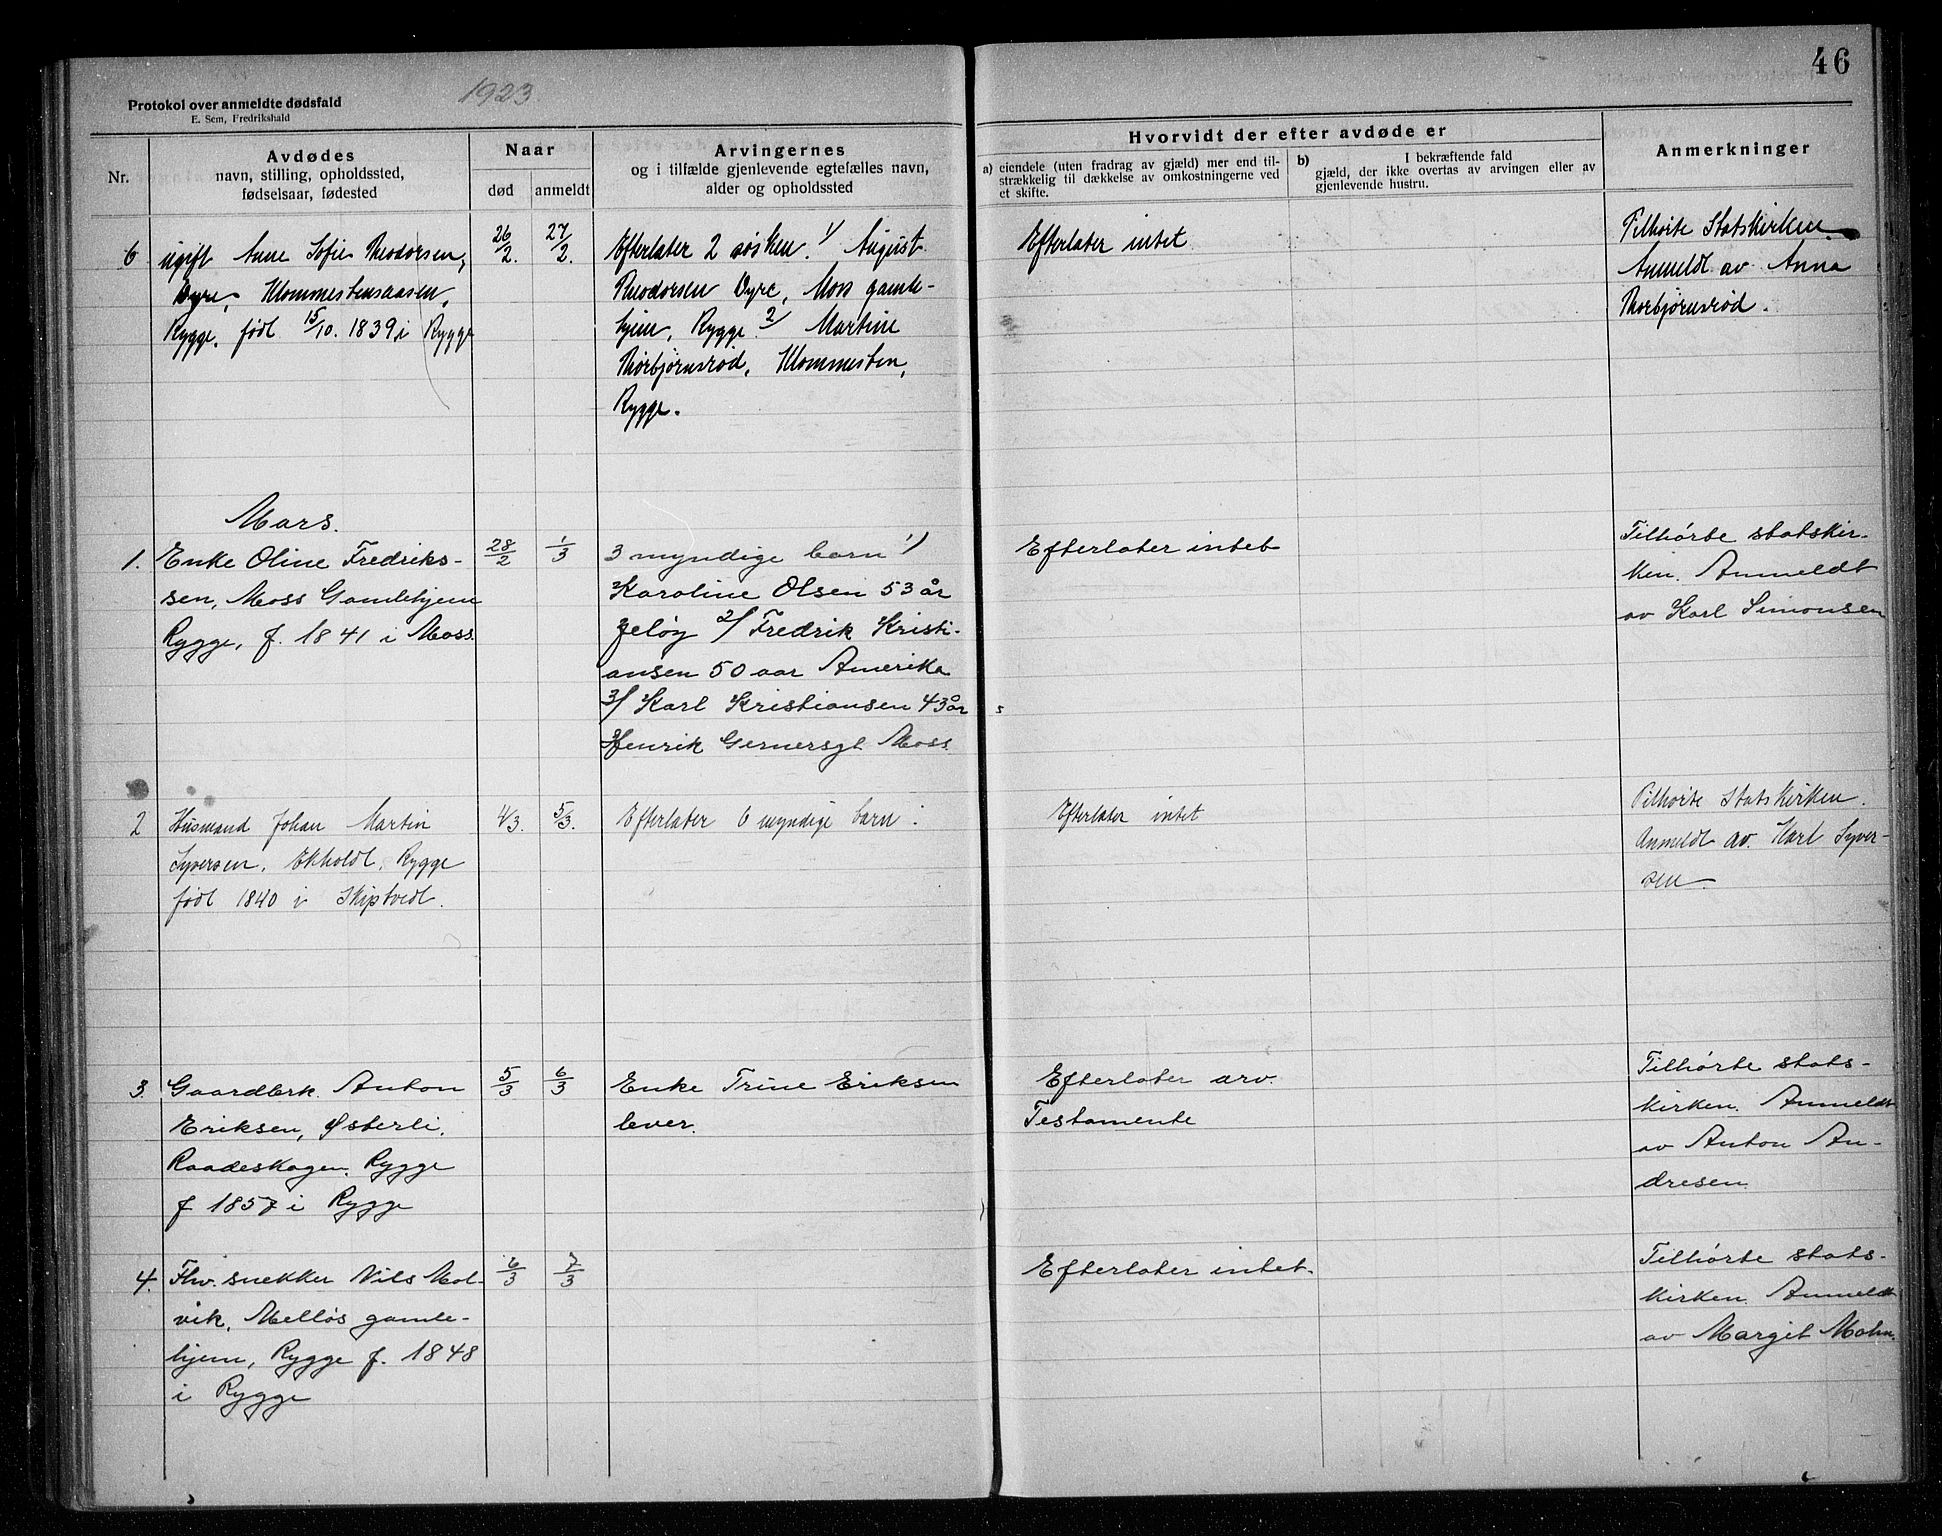 46
1923.
Protokol over anmeldte dødsfald
E. Sem, Fredrikshald
Nr.
Avdødes
navn, stilling, opholdssted,
fødselsaar, fødested
Naar
død
anmeldt
Arvingernes
og i tilfælde gjenlevende egtefælles navn,
alder og opholdssted
Hvorvidt der efter avdøde er
a) eiendele (uten fradrag av gjæld) mer end til-
strækkelig til dækkelse av omkostningerne ved
et skifte.
b) I bekræftende fald
gjæld, der ikke overtas av arvingen eller av
gjenlevende hustru.
Anmerkninger
6
ugift Anne Sofie Theodorsen,
Dyre, Klommestensaasen,
Rygge, født 15/10. 1839 i Rygge
26/2.
27/2.
Efterlater 2 søsken. 1/ August
Theodorsen Dyre, Moss gamle-
hjem, Rygge 2/ Martine
Thorbjørnsrød, Klommesten,
Rygge.
Efterlater intet
Tilhørte Statskirken.
Anmeldt av Anna
Thorbjørnsrød.
Mars.
1.
Enke Oline Fredriks-
sen, Moss Gamlehjem
Rygge, f. 1841 i Moss.
28/2
1/3
3 myndige barn 1/
Karoline Olsen 53 år
Jeløy 2/ Fredrik Kristi-
ansen 50 aar Amerika
3/ Karl Kristiansen 43 år
Henrik Gernersgt Moss
Efterlater intet
Tilhørte statskir-
ken. Anmeldt
av Karl Simonsen
2
Husmand Johan Martin
Syversen, Ekholdt, Rygge
født 1840 i Skiptvedt.
4/3.
5/3.
Efterlater 6 myndige barn.
Efterlater intet
Tilhørte Statskirken.
Anmeldt av. Karl Syver-
sen
3.
Gaardbrk. Anton
Eriksen, Østerli,
Raadeskogen. Rygge
f 1857 i Rygge
5/3
6/3
Enke Trine Eriksen
lever.
Efterlater arv.
Testamente
Tilhørte stats-
kirken. Anmeldt
av Anton An-
dresen.
4.
Fhv. snekker Nils Mol-
vik, Melløs gamle-
hjem, Rygge f. 1848
i Rygge
6/3
7/3
Efterlater intet.
Tilhørte stats-
kirken. Anmeldt
av Margit Mohn.